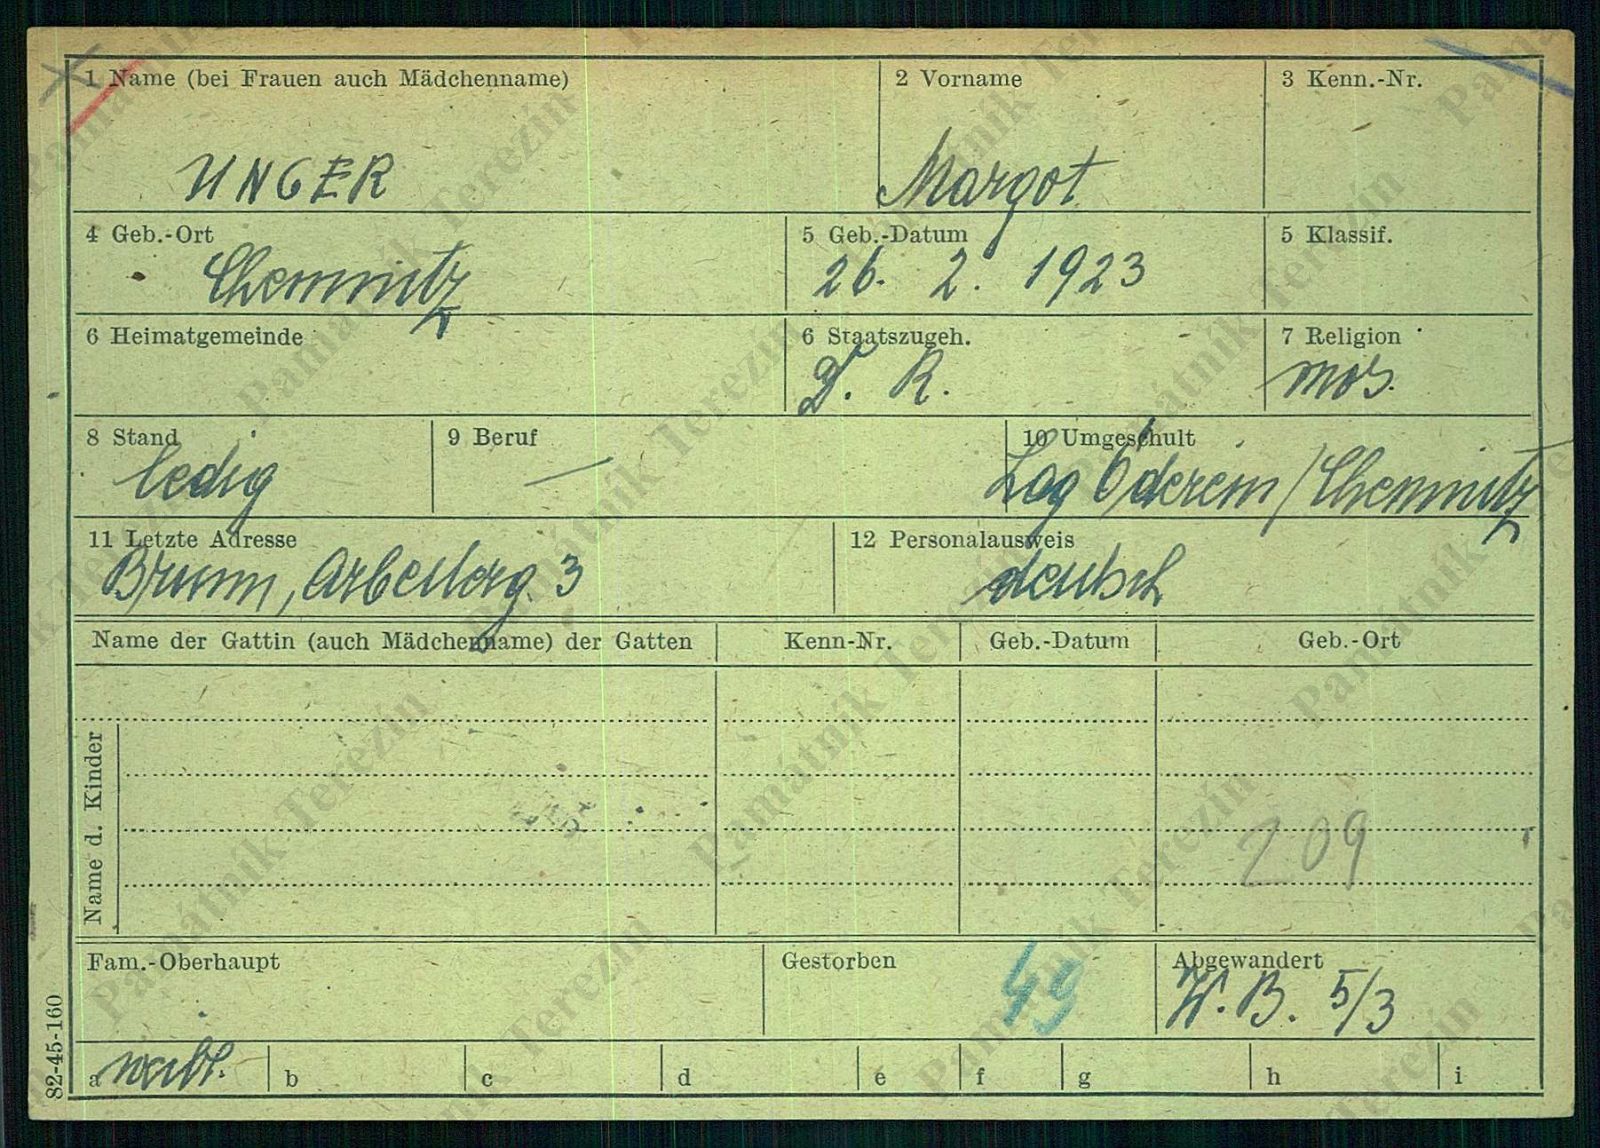 1 Name (bei Frauen auch Mädchenname)
2 Vorname
3 Kenn.-Nr.
UNGER
Margot
4 Geb.-Ort
5 Geb.-Datum
5 Klassif.
Chemnitz
26. 2. 1923
6 Heimatgemeinde
6 Staatszugeh.
7 Religion
D. R.
mos.
8 Stand
9 Beruf
10 Umgeschult
ledig
—
Lag Öderein/Chemnitz
11 Letzte Adresse
12 Personalausweis
Brünn, Arbeiterg. 3
deutsch
Name der Gattin (auch Mädchenname) der Gatten
Kenn-Nr.
Geb.-Datum
Geb.-Ort
Name d. Kinder
209
Fam.-Oberhaupt
Gestorben
49
Abgewandert
W. B. 5/3
82-45-160
a weibl.
b
c
d
e
f
g
h
i
Památník Terezín